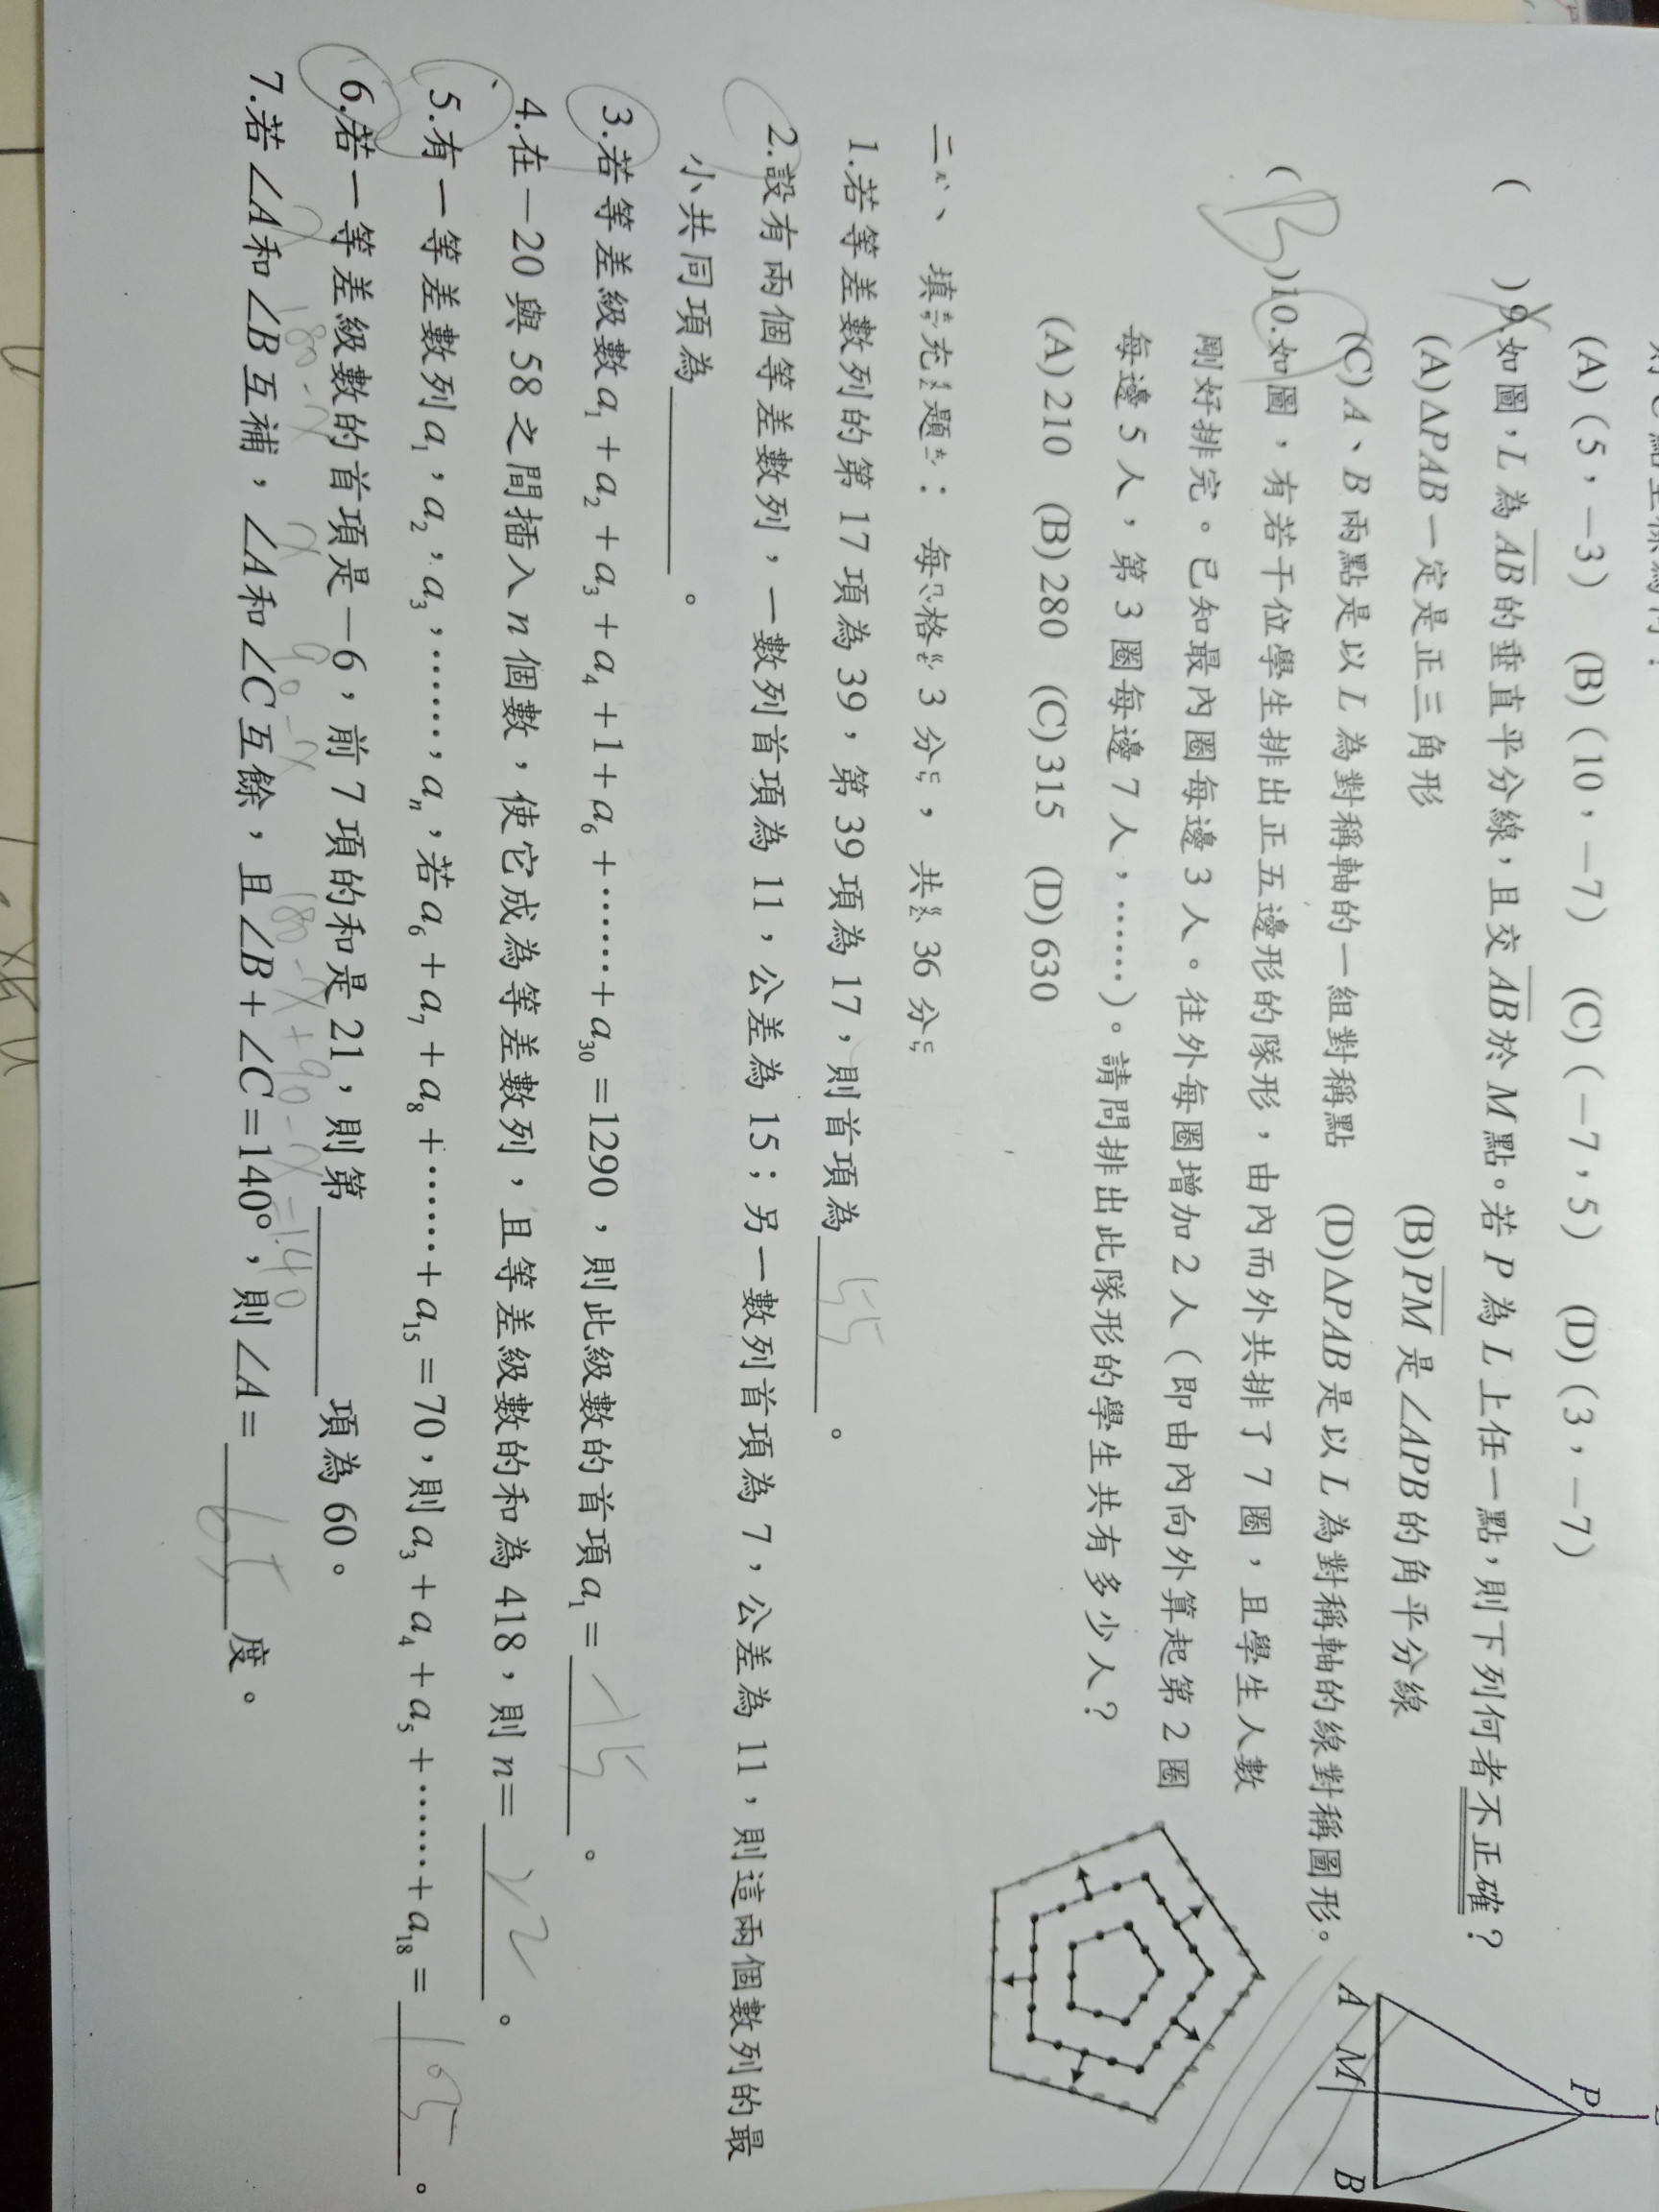 (A)(5,-3) (B)(10,-7) (C)(-7,5) (D)(3,-7)
( )9.如圖,L為AB的垂直平分線,且交AB於M點。若P為L上任一點,則下列何者不正確?
(A)ΔPAB一定是正三角形 (B)PM是∠APB的角平分線
(C)A、B兩點是以L為對稱軸的一組對稱點 (D)ΔPAB是以L為對稱軸的線對稱圖形。
P
A M B
(B)10.如圖,有若干位學生排出正五邊形的隊形,由內而外共排了7圈,且學生人數
剛好排完。已知最內圈每邊3人。往外每圈增加2人(即由內向外算起第2圈
每邊5人,第3圈每邊7人,……)。請問排出此隊形的學生共有多少人?
(A)210 (B)280 (C)315 (D)630
二、填充題:每格3分,共36分
1.若等差數列的第17項為39,第39項為17,則首項為55。
2.設有兩個等差數列,一數列首項為11,公差為15;另一數列首項為7,公差為11,則這兩個數列的最
小共同項為____。
3.若等差級數a₁+a₂+a₃+a₄+1+a₆+……+a₃₀=1290,則此級數的首項a₁=-15。
4.在-20與58之間插入n個數,使它成為等差數列,且等差級數的和為418,則n=。
5.有一等差數列a₁,a₂,a₃,……,aₙ,若a₆+a₇+a₈+……+a₁₅=70,則a₃+a₄+a₅+……+a₁₈=。
6.若一等差級數的首項是-6,前7項的和是21,則第____項為60。
x 180-x x 90-x 180-x+90-x=140
7.若∠A和∠B互補,∠A和∠C互餘,且∠B+∠C=140°,則∠A=65度。